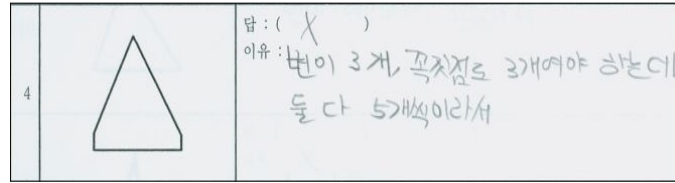 4
답 : ( X )
이유 : 변이 3개, 꼭짓점도 3개여야 하는데
둘 다 5개씩이라서